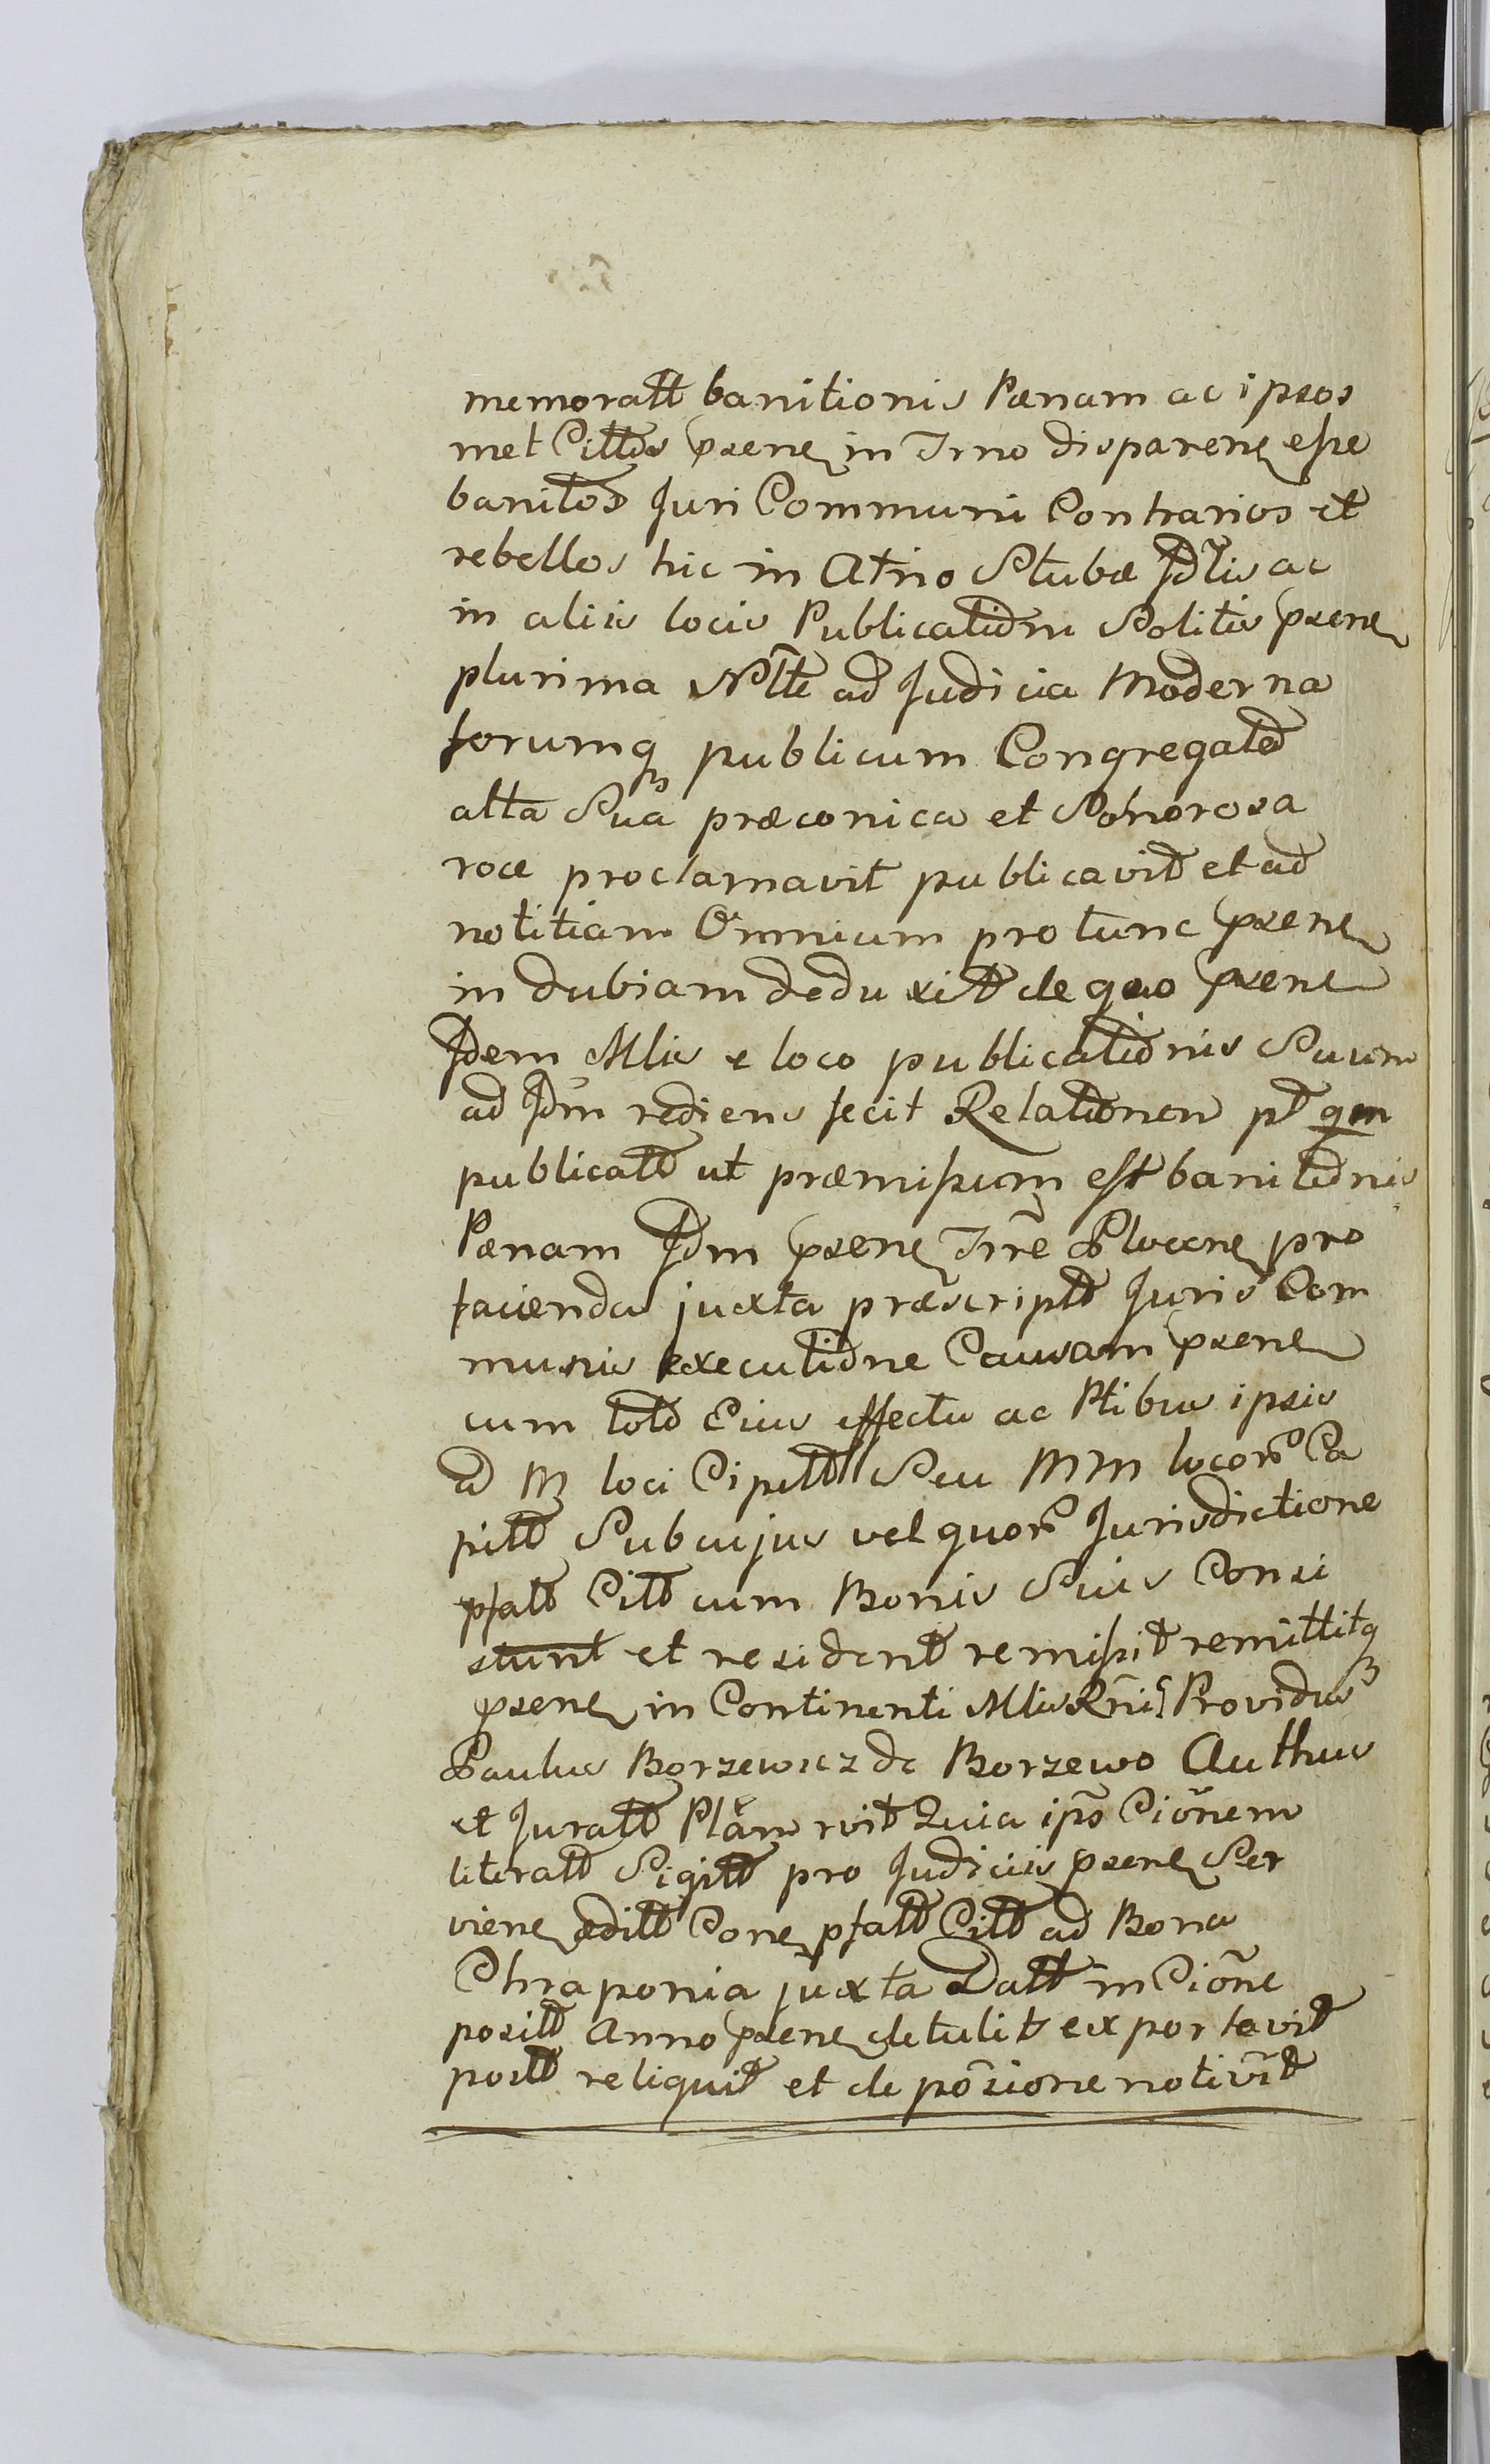 memoratt banitionis Pænam ac ipsos
met Cittos præsen in Trno disparen esse
banitos Juri Communi Contrarios et
rebelles hic in Atrio Stubæ Jdlis ac
in aliis locis Publicationi Solitis præsen
plurima Nltte ad Judicia Moderna
forumq publicum Congregate
alta Sua præconica et Sonorosa
voce proclamavit publicavit et ad
notitiam Omnium pro tunc præsen
in dubiam deduxit de quo præsen
Jdem Mlis e loco publicationis Suum
ad Jdm rediens fecit Relationem pt qm
publicatt ut præmissum est banitionis
Pænam Jdm præsen Trre Plocen pro
facienda juxta præscriptt Juris Com
munis executione Causam præsen
cum toto Eius effectu ac Ptibus ipsis
ad M loci Cipitt Seu MM locor Ca
pitt Sub cujus vel quor Jurisdictione
pfatt Citt cum Bonis Suis Consi
stunt et resident remisit remittitq
præsen in Continenti Mlis Rni Providus
Paulus Borzewicz de Borzewo Authus
et Juratt Plam rvit Quia ips Cionem
literatt Sigitt pro Judiciis præsen Ser
vien editt Cone pfatt Citt ad Bona
Chraponia juxta Datt in Cione
positt Anno præsen detulit exportavit
positt reliquit et de posione notivit